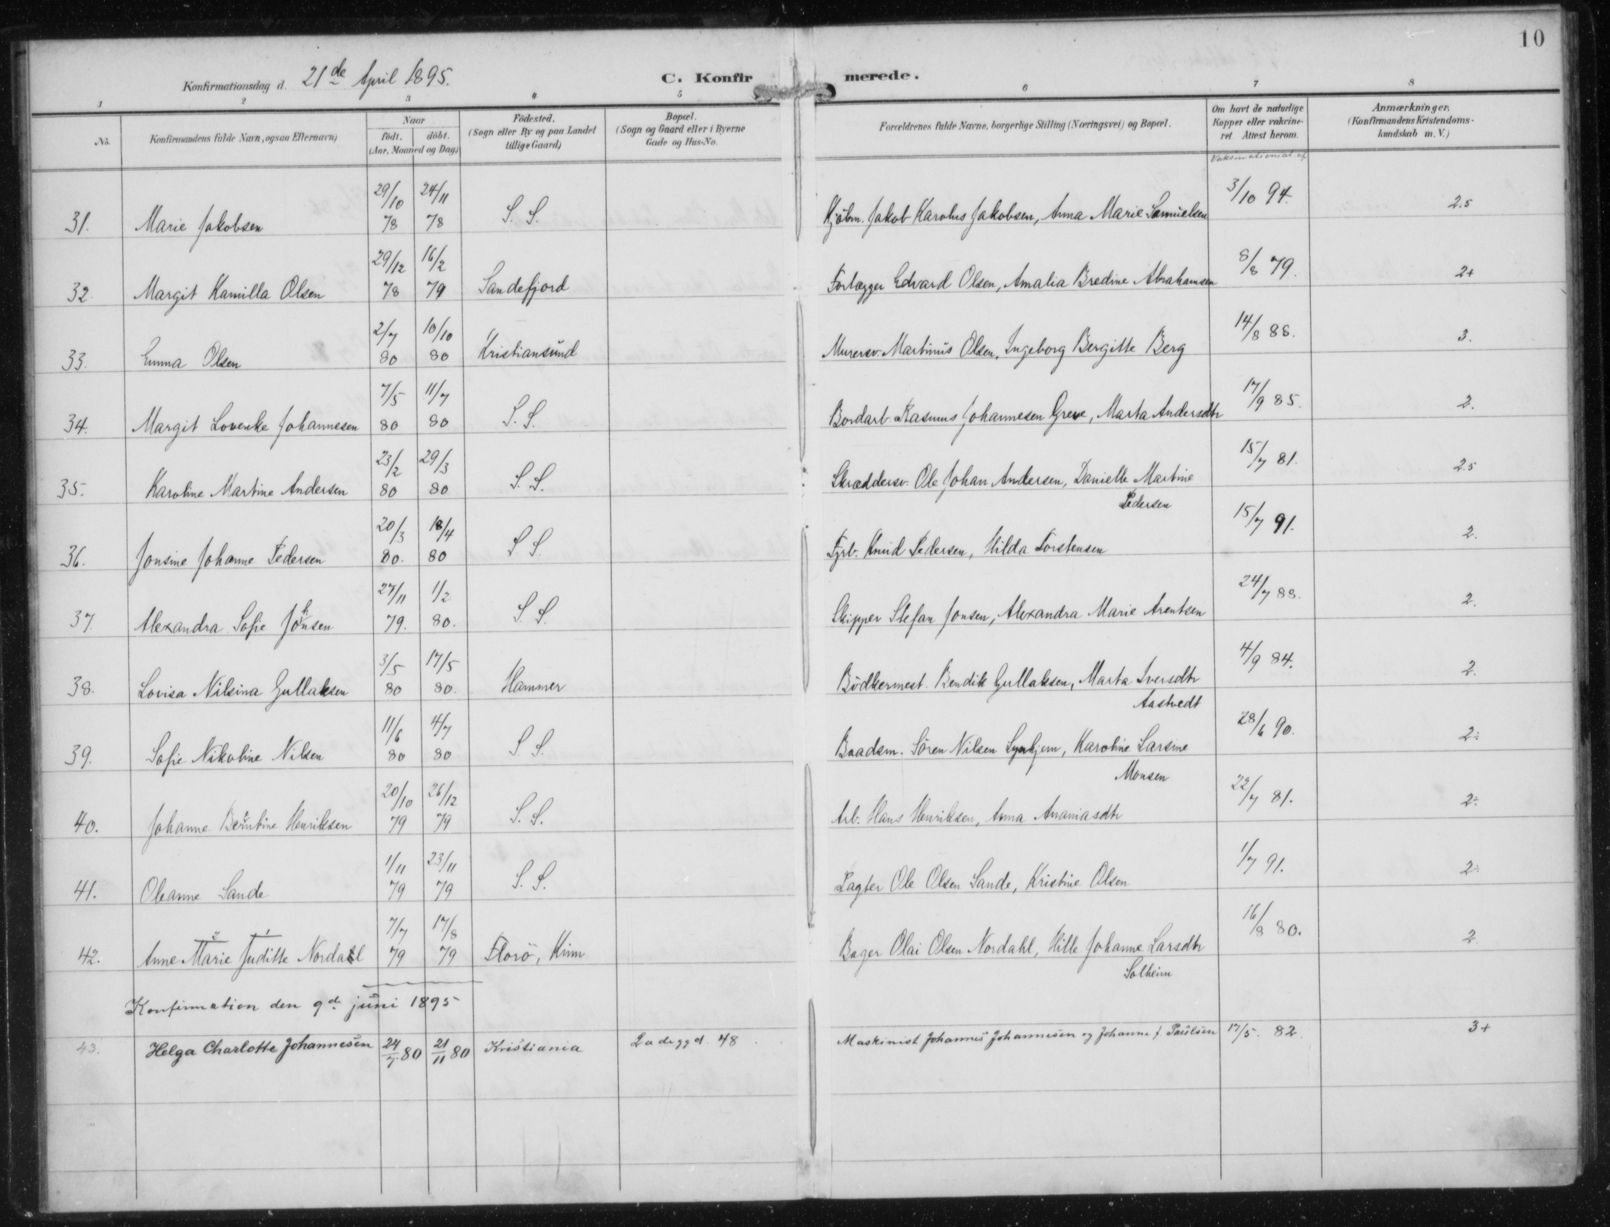 10
Konfirmationsdag d. 21de April 1895.
C. Konfirmerede.
1 2 3 4 5 6 7 8
No. Konfirmandens fulde Navn, ogsaa Efternavn)
Naar
födt. döbt.
(Aar, Maaned og Dag.)
Födested.
(Sogn eller By og paa Landet
tillige Gaard)
Bopæl.
(Sogn og Gaard eller i Byerne
Gade og Hus-No.
Forældrenes fulde Navne, borgerlige Stilling (Næringsvei) og Bopæl.
Om havt de naturlige
Kopper eller vakcine-
ret Attest herom.
Anmærkninger.
(Konfirmandens Kristendoms-
kundskab m. V.)
31. Marie Jakobsen 29/10 78 24/11 78 S. S. Kjöbm. Jakob Karolus Jakobsen, Anna Marie Samuelsen 3/10 94. 2.5
32. Margit Kamilla Olsen 29/12 78 16/2 79 Sandefjord Forlægger Edvard Olsen, Amalia Bredine Abrahamsen 8/8 79. 2+
33. Emma Olsen 2/7 80 10/10 80 Kristiansund Murersv. Martinus Olsen, Ingeborg Bergitte Berg 14/8 88. 3.
34. Margit Lovenke Johannesen 7/5 80 11/7 80 S. S. Bordarb. Rasmus Johannesen Greve, Marta Andersdtr 17/9 85. 2.
35. Karoline Martine Andersen 23/2 80 29/3 80 S. S. Skræddersv. Ole Johan Andersen, Danielle Martine
Pedersen 15/7 81. 2.5
36. Jonsine Johanne Pedersen 20/3 80. 18/4 80 S S. Fyrb. Knud Pedersen, Hilda Torstensen 15/7 91. 2.
37 Alexandra Sofie Jonsen 27/11 79. 1/2 80. S S. Skipper Stefan Jonsen, Alexandra Marie Arentsen 24/7 88. 2.
38. Lovisa Nilsina Gullaksen 3/5 80 17/5 80. Hammer Bödkermest. Bendik Gullaksen, Marta Iversdtr
Aastvedt 4/9 84. 2.
39. Sofie Nikoline Nilsen 11/6 80 4/7 80 S S. Baadsm. Sören Nilsen, Karoline Larsine
Monsen 28/6 90. 2÷
40. Johanne Berntine Henriksen 20/10 79 26/12 79 S. S. Arb. Hans Henriksen, Anna Ananiasdtr 22/7 81. 2÷
41. Oleanne Sande 1/11 79 23/11 79 S. S. Lagter Ole Olsen Sande, Kristine Olsen 1/7 91. 2÷
42. Anne Marie Juditte Nordahl 7/7 79 17/8 79 Florö, Kinn Bager Olai Olsen Nordahl, Hille Johanne Larsdtr
Solheim 16/8 80. 2
Konfirmation den 9de juni 1895
43. Helga Charlotte Johannesen 24/7 80 21/11 80 Kristiania Ladegd. 48 Maskinist Johannes Johannesen og Johanne f Paulsen 17/5. 82 3+